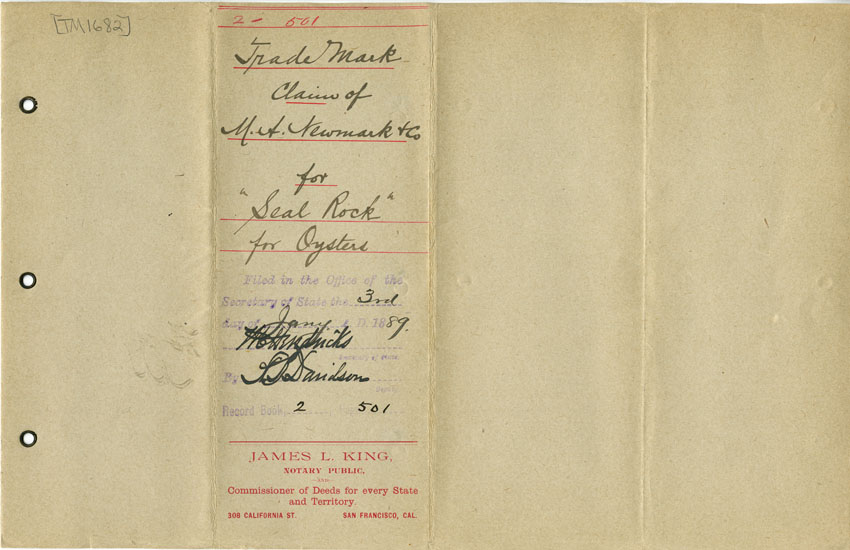 [TM1682]
2 - 501
Trade Mark
Claim of
M. A. Newmark & Co
for
"Seal Rock"
for Oysters
Filed in the Office of the
Secretary of State the 3rd
day of Jany A.D. 1889.
W C Hendricks
Secretary of State
By L L Davidson
Deputy
Record Book 2 501
JAMES L. KING,
NOTARY PUBLIC,
—AND—
Commissioner of Deeds for every State
and Territory.
308 CALIFORNIA ST. SAN FRANCISCO, CAL.